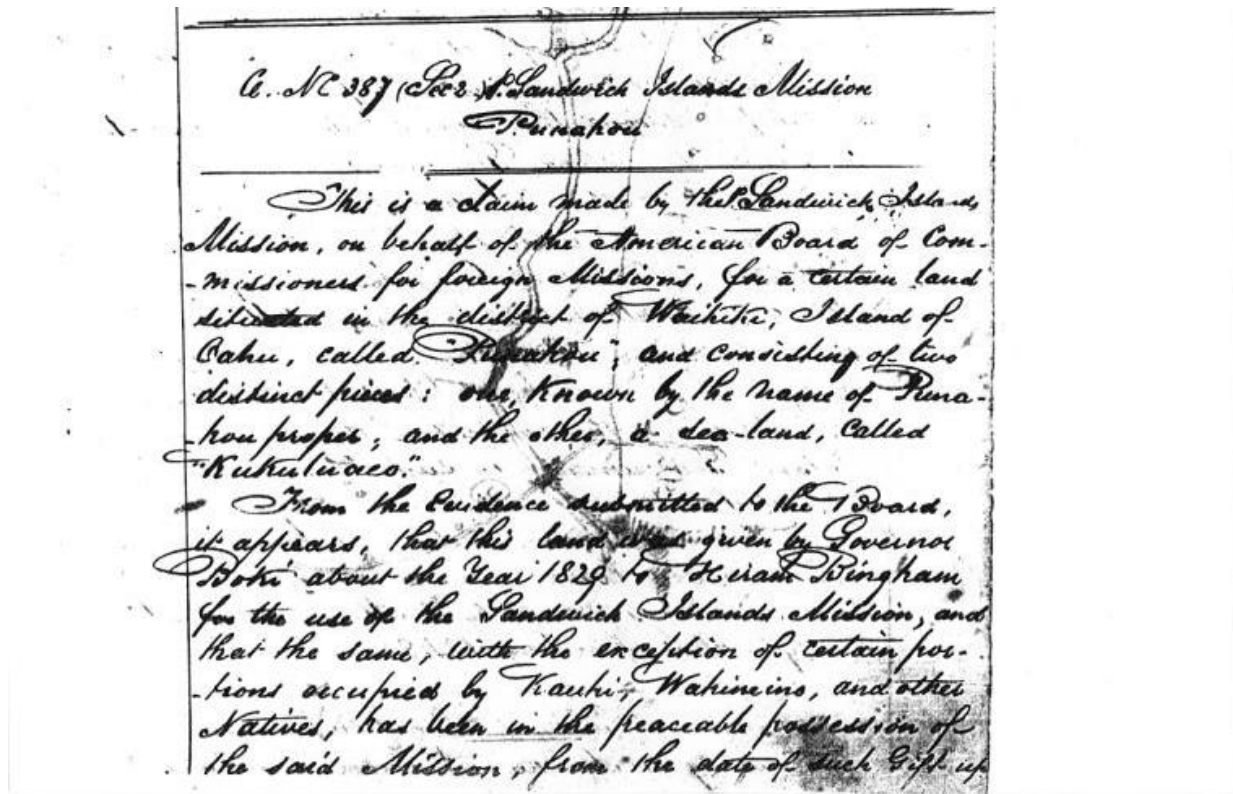 C. No 387 (Sec 2) Sandwich Islands Mission
Punahou
This is a claim made by the Sandwich Islands
Mission, on behalf of the American Board of Com-
-missioners for foreign Missions, for a certain land
situated in the district of Waikiki, Island of
Oahu, called "Punahou", and consisting of two
distinct pieces: one, known by the name of Puna-
-hou proper; and the other, a sea-land, called
"Kukuluaeo."
From the Evidence submitted to the Board,
it appears, that this land was given by Governor
Boki about the Year 1829 to Hiram Bingham
for the use of the Sandwich Islands Mission, and
that the same, with the exception of certain por-
-tions occupied by Kauhi, Wahineino, and other
Natives, has been in the peaceable possession of
the said Mission, from the date of such Gift up